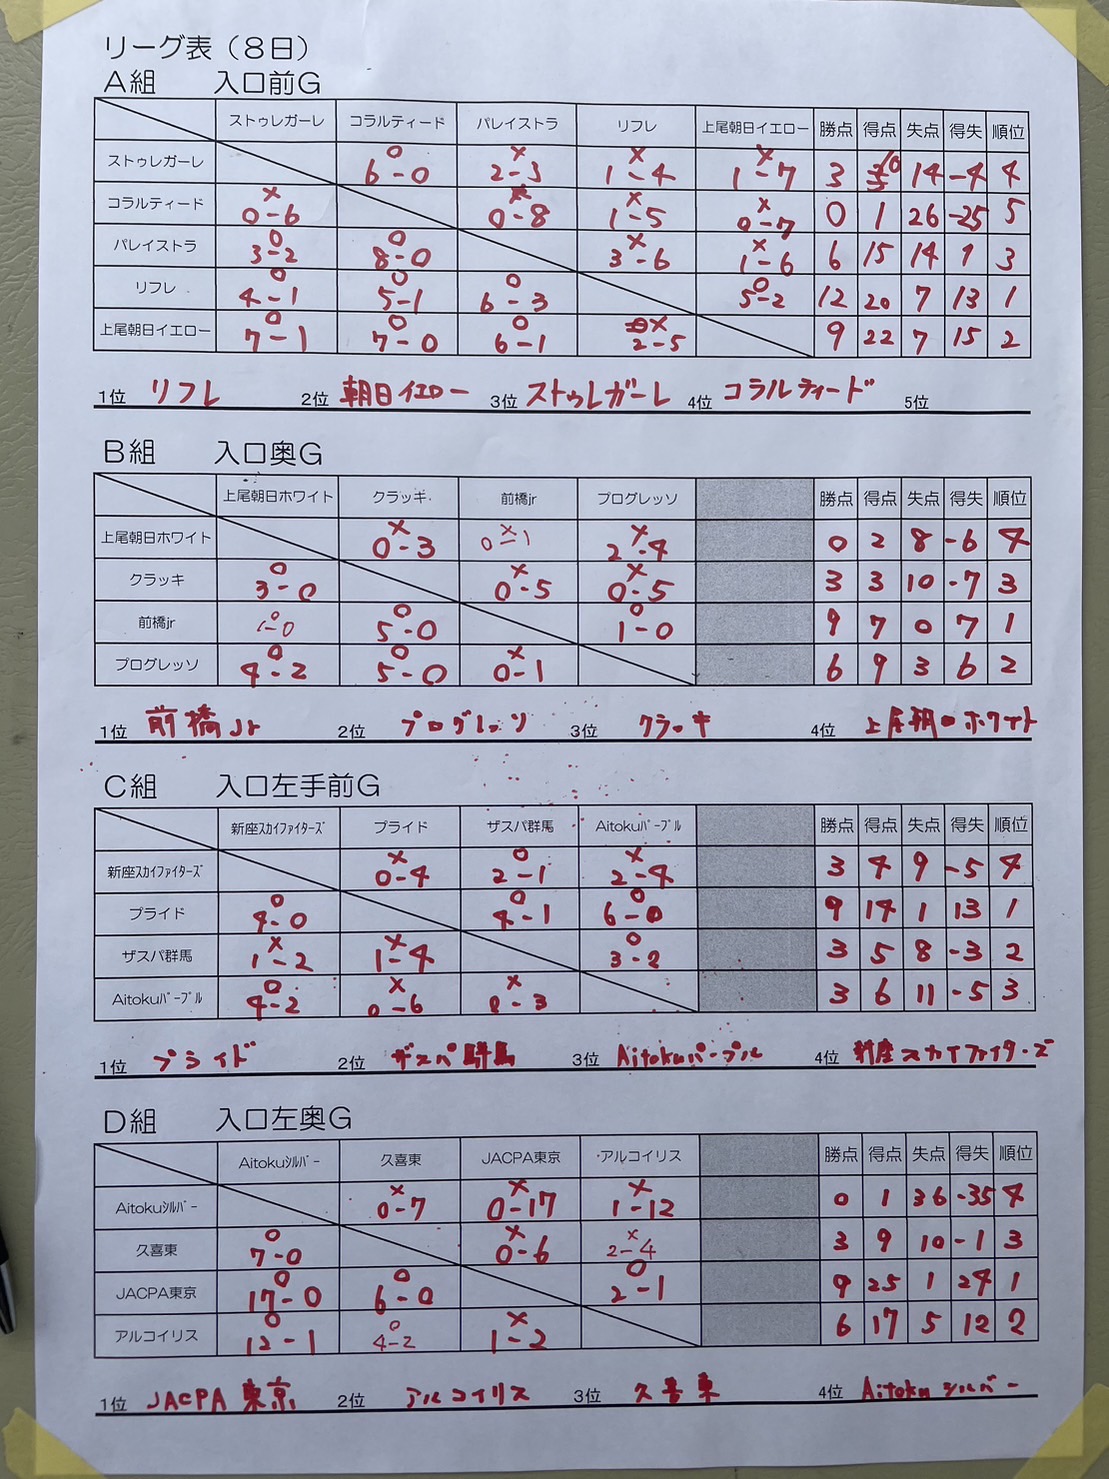 リーグ表（8日）
A組 入口前G
ストゥレガーレ コラルティード パレイストラ リフレ 上尾朝日イエロー 勝点 得点 失点 得失 順位
ストゥレガーレ ○ 6-0 × 2-3 × 1-4 × 1-7 3 10 14 -4 4
コラルティード × 0-6 × 0-8 × 1-5 × 0-7 0 1 26 -25 5
パレイストラ ○ 3-2 ○ 8-0 × 3-6 × 1-6 6 15 14 1 3
リフレ ○ 4-1 ○ 5-1 ○ 6-3 ○ 5-2 12 20 7 13 1
上尾朝日イエロー ○ 7-1 ○ 7-0 ○ 6-1 × 2-5 9 22 7 15 2
1位 リフレ 2位 朝日イエロー 3位 ストゥレガーレ 4位 コラルティード 5位
B組 入口奥G
上尾朝日ホワイト クラッキ 前橋jr プログレッソ 勝点 得点 失点 得失 順位
上尾朝日ホワイト × 0-3 × 0-1 × 2-4 0 2 8 -6 4
クラッキ ○ 3-0 × 0-5 × 0-5 3 3 10 -7 3
前橋jr ○ 1-0 ○ 5-0 ○ 1-0 9 7 0 7 1
プログレッソ ○ 4-2 ○ 5-0 × 0-1 6 9 3 6 2
1位 前橋Jr 2位 プログレッソ 3位 クラッキ 4位 上尾朝日ホワイト
C組 入口左手前G
新座ｽｶｲﾌｧｲﾀｰｽﾞ プライド ザスパ群馬 Aitokuﾊﾟｰﾌﾟﾙ 勝点 得点 失点 得失 順位
新座ｽｶｲﾌｧｲﾀｰｽﾞ × 0-4 ○ 2-1 × 2-4 3 4 9 -5 4
プライド ○ 4-0 ○ 4-1 ○ 6-0 9 14 1 13 1
ザスパ群馬 × 1-2 × 1-4 ○ 3-2 3 5 8 -3 2
Aitokuﾊﾟｰﾌﾟﾙ ○ 4-2 × 0-6 × 2-3 3 6 11 -5 3
1位 プライド 2位 ザスパ群馬 3位 Aitokuパープル 4位 新座スカイファイターズ
D組 入口左奥G
Aitokuｼﾙﾊﾞｰ 久喜東 JACPA東京 アルコイリス 勝点 得点 失点 得失 順位
Aitokuｼﾙﾊﾞｰ × 0-7 × 0-17 × 1-12 0 1 36 -35 4
久喜東 ○ 7-0 × 0-6 × 2-4 3 9 10 -1 3
JACPA東京 ○ 17-0 ○ 6-0 ○ 2-1 9 25 1 24 1
アルコイリス ○ 12-1 ○ 4-2 × 1-2 6 17 5 12 2
1位 JACPA東京 2位 アルコイリス 3位 久喜東 4位 Aitokuシルバー